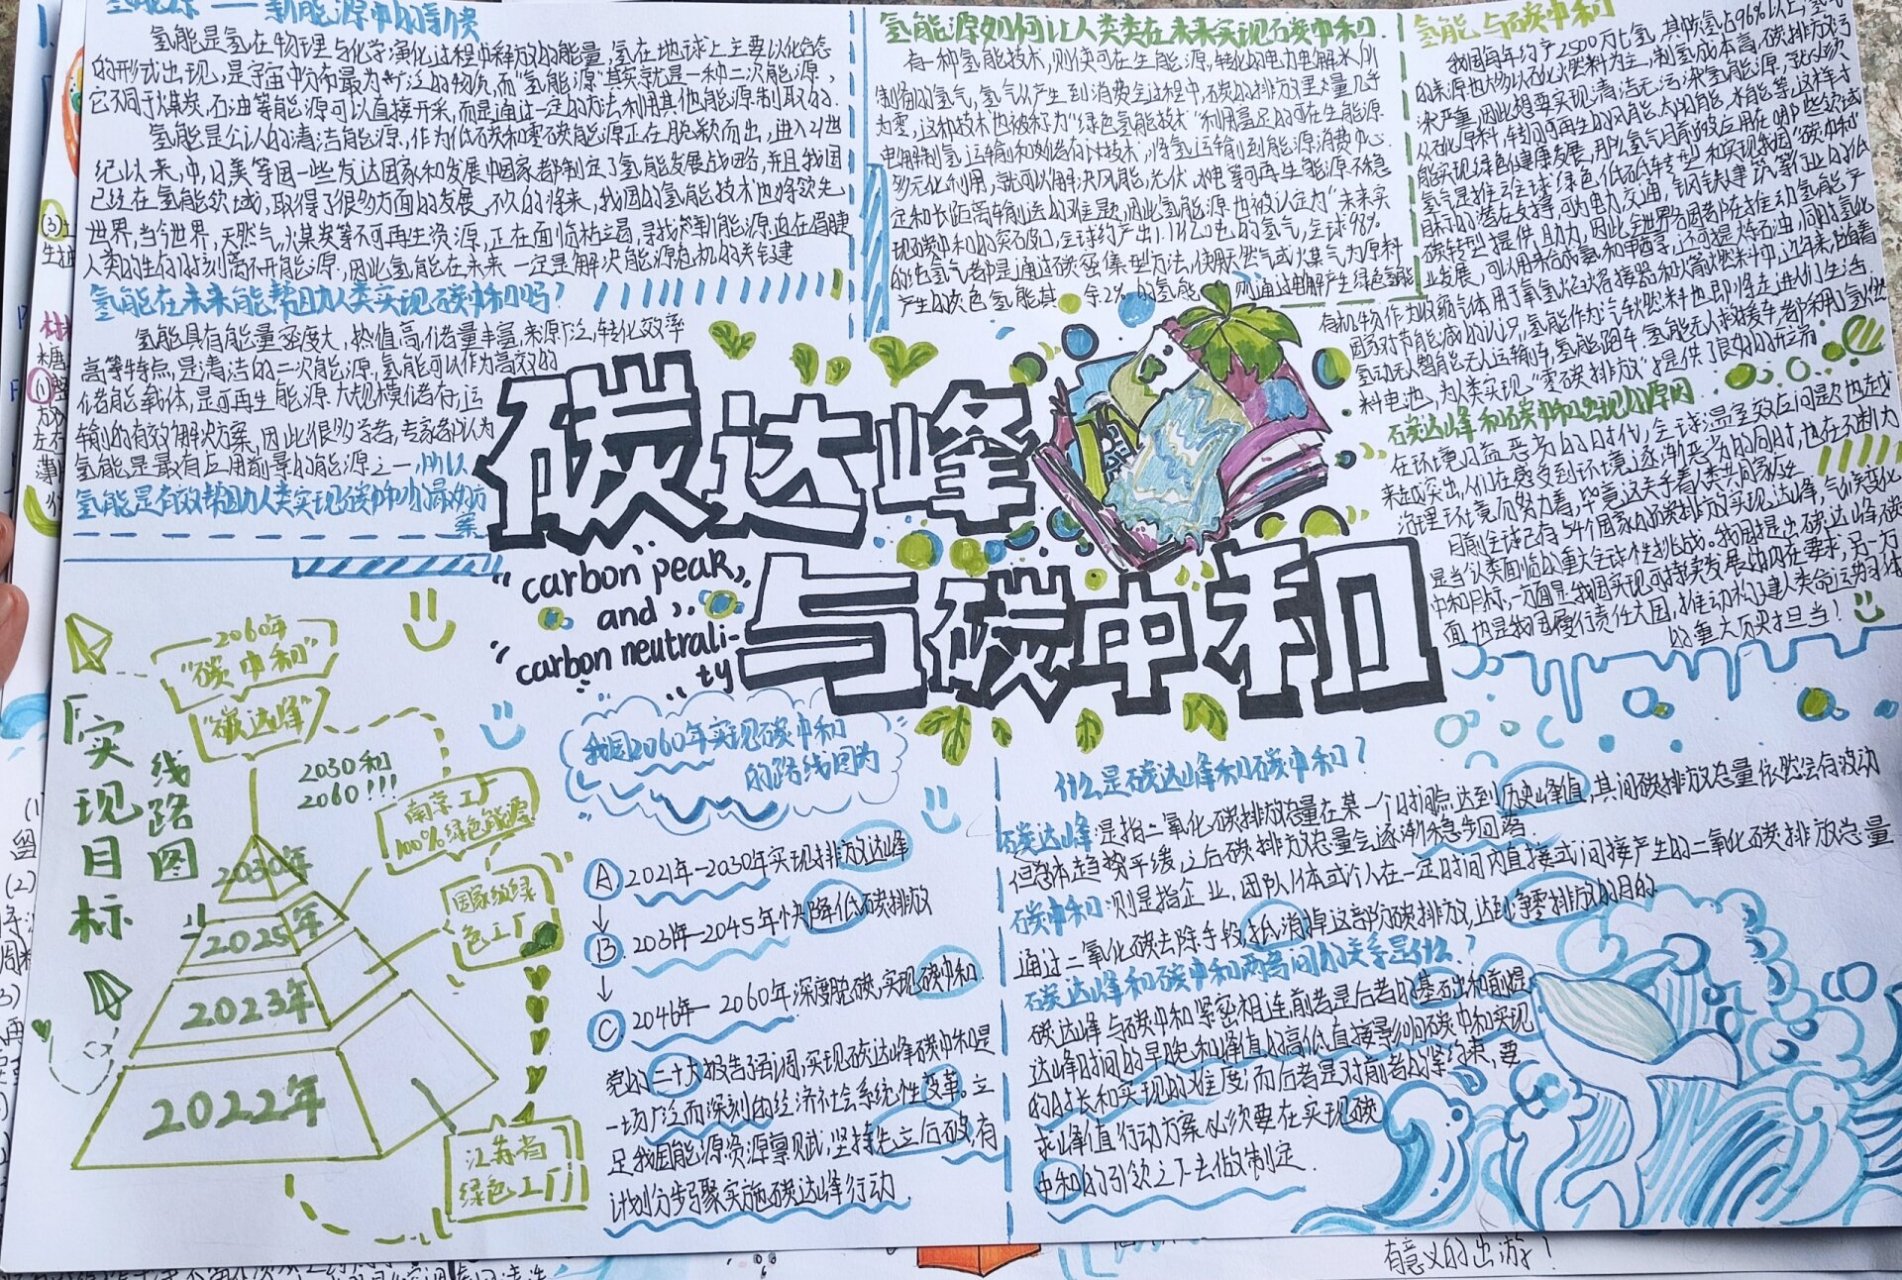 氢能源——新能源中的新贵
氢能是氢在物理与化学演化过程中释放的能量,氢在地球上主要以化合态
的形式出现,是宇宙中分布最为广泛的物质,而"氢能源"其实就是一种二次能源,
它不同于煤炭,石油等能源可以直接开采,而是通过一定的方法利用其他能源制取的.
氢能是公认的清洁能源,作为低碳和零碳能源正在脱颖而出,进入21世
纪以来,中,日美等国一些发达国家和发展中国家都制定了氢能发展战略,并且我国
已经在氢能领域,取得了很多方面的发展,不久的将来,我国的氢能技术也将领先
世界,当今世界,天然气,火煤炭等不可再生资源,正在面临枯竭,寻找新能源迫在眉睫
人类的生命时刻离不开能源,因此氢能在未来一定是解决能源危机的关键
氢能在未来能帮助人类实现碳中和吗?
氢能具有能量密度大,热值高,储量丰富,来源广泛,转化效率
高等特点,是清洁的二次能源,氢能可以作为高效的
储能载体,是可再生能源大规模储存,运
输的有效解决方案,因此很多学者,专家都认为
氢能是最有应用前景的能源之一,所以
氢能是有效帮助人类实现碳中和的最好方
案
氢能源如何让人类在未来实现碳中和.
有一种氢能技术,则使可在生能源,转化的电力电解水所
制备的氢气,氢气从产生到消费全过程中,碳的排放量几乎
为零,这种技术也被称为"绿色氢能技术"利用富足的可在生能源
电解制氢,运输和储存技术,将氢运输到能源消费中心
多元化利用,就可以解决风能,光伏,水电等可再生能源不稳
定和长距离输送的难题,因此氢能源也被认定为"未来实
现碳中和的突破口,全球约产出1.1亿吨的氢气,全球98%
的氢气都是通过碳密集型方法,使用天然气或火煤气为原料
产生的灰色氢能,其余2%的氢能则通过电解产生绿色氢能
氢能与碳中和
我国每年约产2500万吨氢,其中碳氢占96%以上,
的来源也大多以石化燃料为主,制氢成本高,碳排放污
染严重,因此想要实现清洁无污染氢能源,就必须
从石化原料,转向可再生的风能,太阳能,水能等,这样才
能实现绿色健康发展,那么氢气目前被应用在哪些领域
氢气是推动全球绿色低碳转型和实现我国"碳中和"
目标的潜在支撑,可为电力,交通,钢铁,建筑,等行业的低
碳转型提供助力,因此全世界各国都在推动氢能产
业发展,可以用来合成氨和甲醇,
有机物,作为收缩气体用了氧氢火焰焊接器和火箭燃料中,近年来,随着
因为对节能减的认识,氢能作为汽车燃料也即将走进人们生活,
氢动无人智能无人运输车,氢能跑车,氢能无人救援车都采用了氢燃
料电池,为人类实现"零碳排放"提供了良好的开端
碳达峰和碳中和出现的原因
在环境日益恶劣的时代,全球温室效应问题也越
来越突出,人们在感受到环境逐渐恶劣的同时,也在不断加大
治理环境的努力着,毕竟这关乎着人类共同家业
目前全球已有54个国家的碳排放的实现达峰,气候变化
是当人类面临的重大全球性挑战。我国提出碳达峰,碳
中和目标,一方面是我国实现可持续发展的内在要求,另一方
面,也是我国履行责任大国,推动构建人类命运共同体
的重大历史担当!
碳达峰
与碳中和
"carbon peak,
and
"carbon neutrali-
ty
「实现目标
线路图
2060年
"碳中和"
"碳达峰"
2030和
2060!!!
南京工厂
100%绿色能源
国家级绿
色工厂
江苏省
绿色工厂
2030年
2025年
2023年
2022年
我国2060年实现碳中和
的路线图为
A 2021年-2030年实现排放达峰
B 2031年-2045年快降低碳排放
C 2046年-2060年深度脱碳,实现碳中和
党的二十大报告强调,实现碳达峰碳中和是
一场广泛而深刻的经济社会系统性变革。立
足我国能源资源禀赋,坚持先立后破,有
计划分步骤实施碳达峰行动
什么是碳达峰和碳中和?
碳达峰:是指二氧化碳排放总量在某一个时间点达到历史峰值,其间碳排放总量依然会有波动
但总体趋势平缓,之后碳排放总量会逐渐稳步回落.
碳中和:则是指企业,团队,个体或个人在一定时间内直接或间接产生的二氧化碳排放总量
通过二氧化碳去除手段,抵消掉这部份碳排放,达到净零排放的目的
碳达峰和碳中和两者间的关系是什么?
碳达峰与碳中和紧密相连,前者是后者的基础和前提
达峰时间的早晚和峰值的高低,直接影响碳中和实现
的时长和实现的难度;而后者是对前者的紧约束,要
求峰值行动方案必须要在实现碳
中和的引领之下去做制定.
有意义的出游!